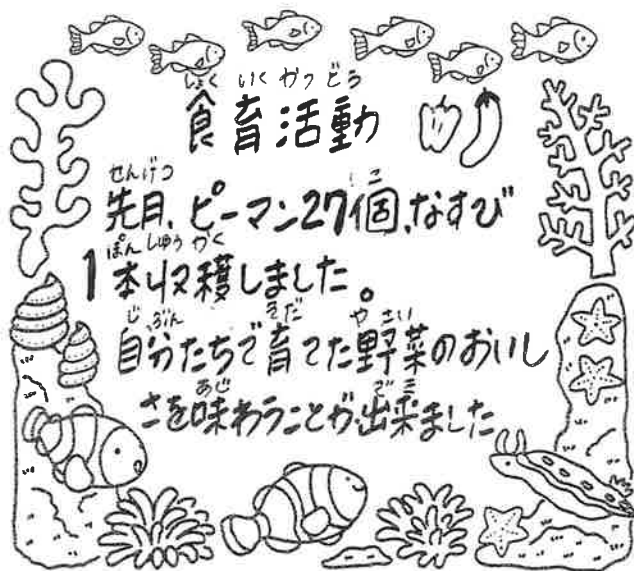 食育活動
先月、ピーマン27個、なすび
1本収穫しました。
自分たちで育てた野菜のおいし
さを味わうことが出来ました